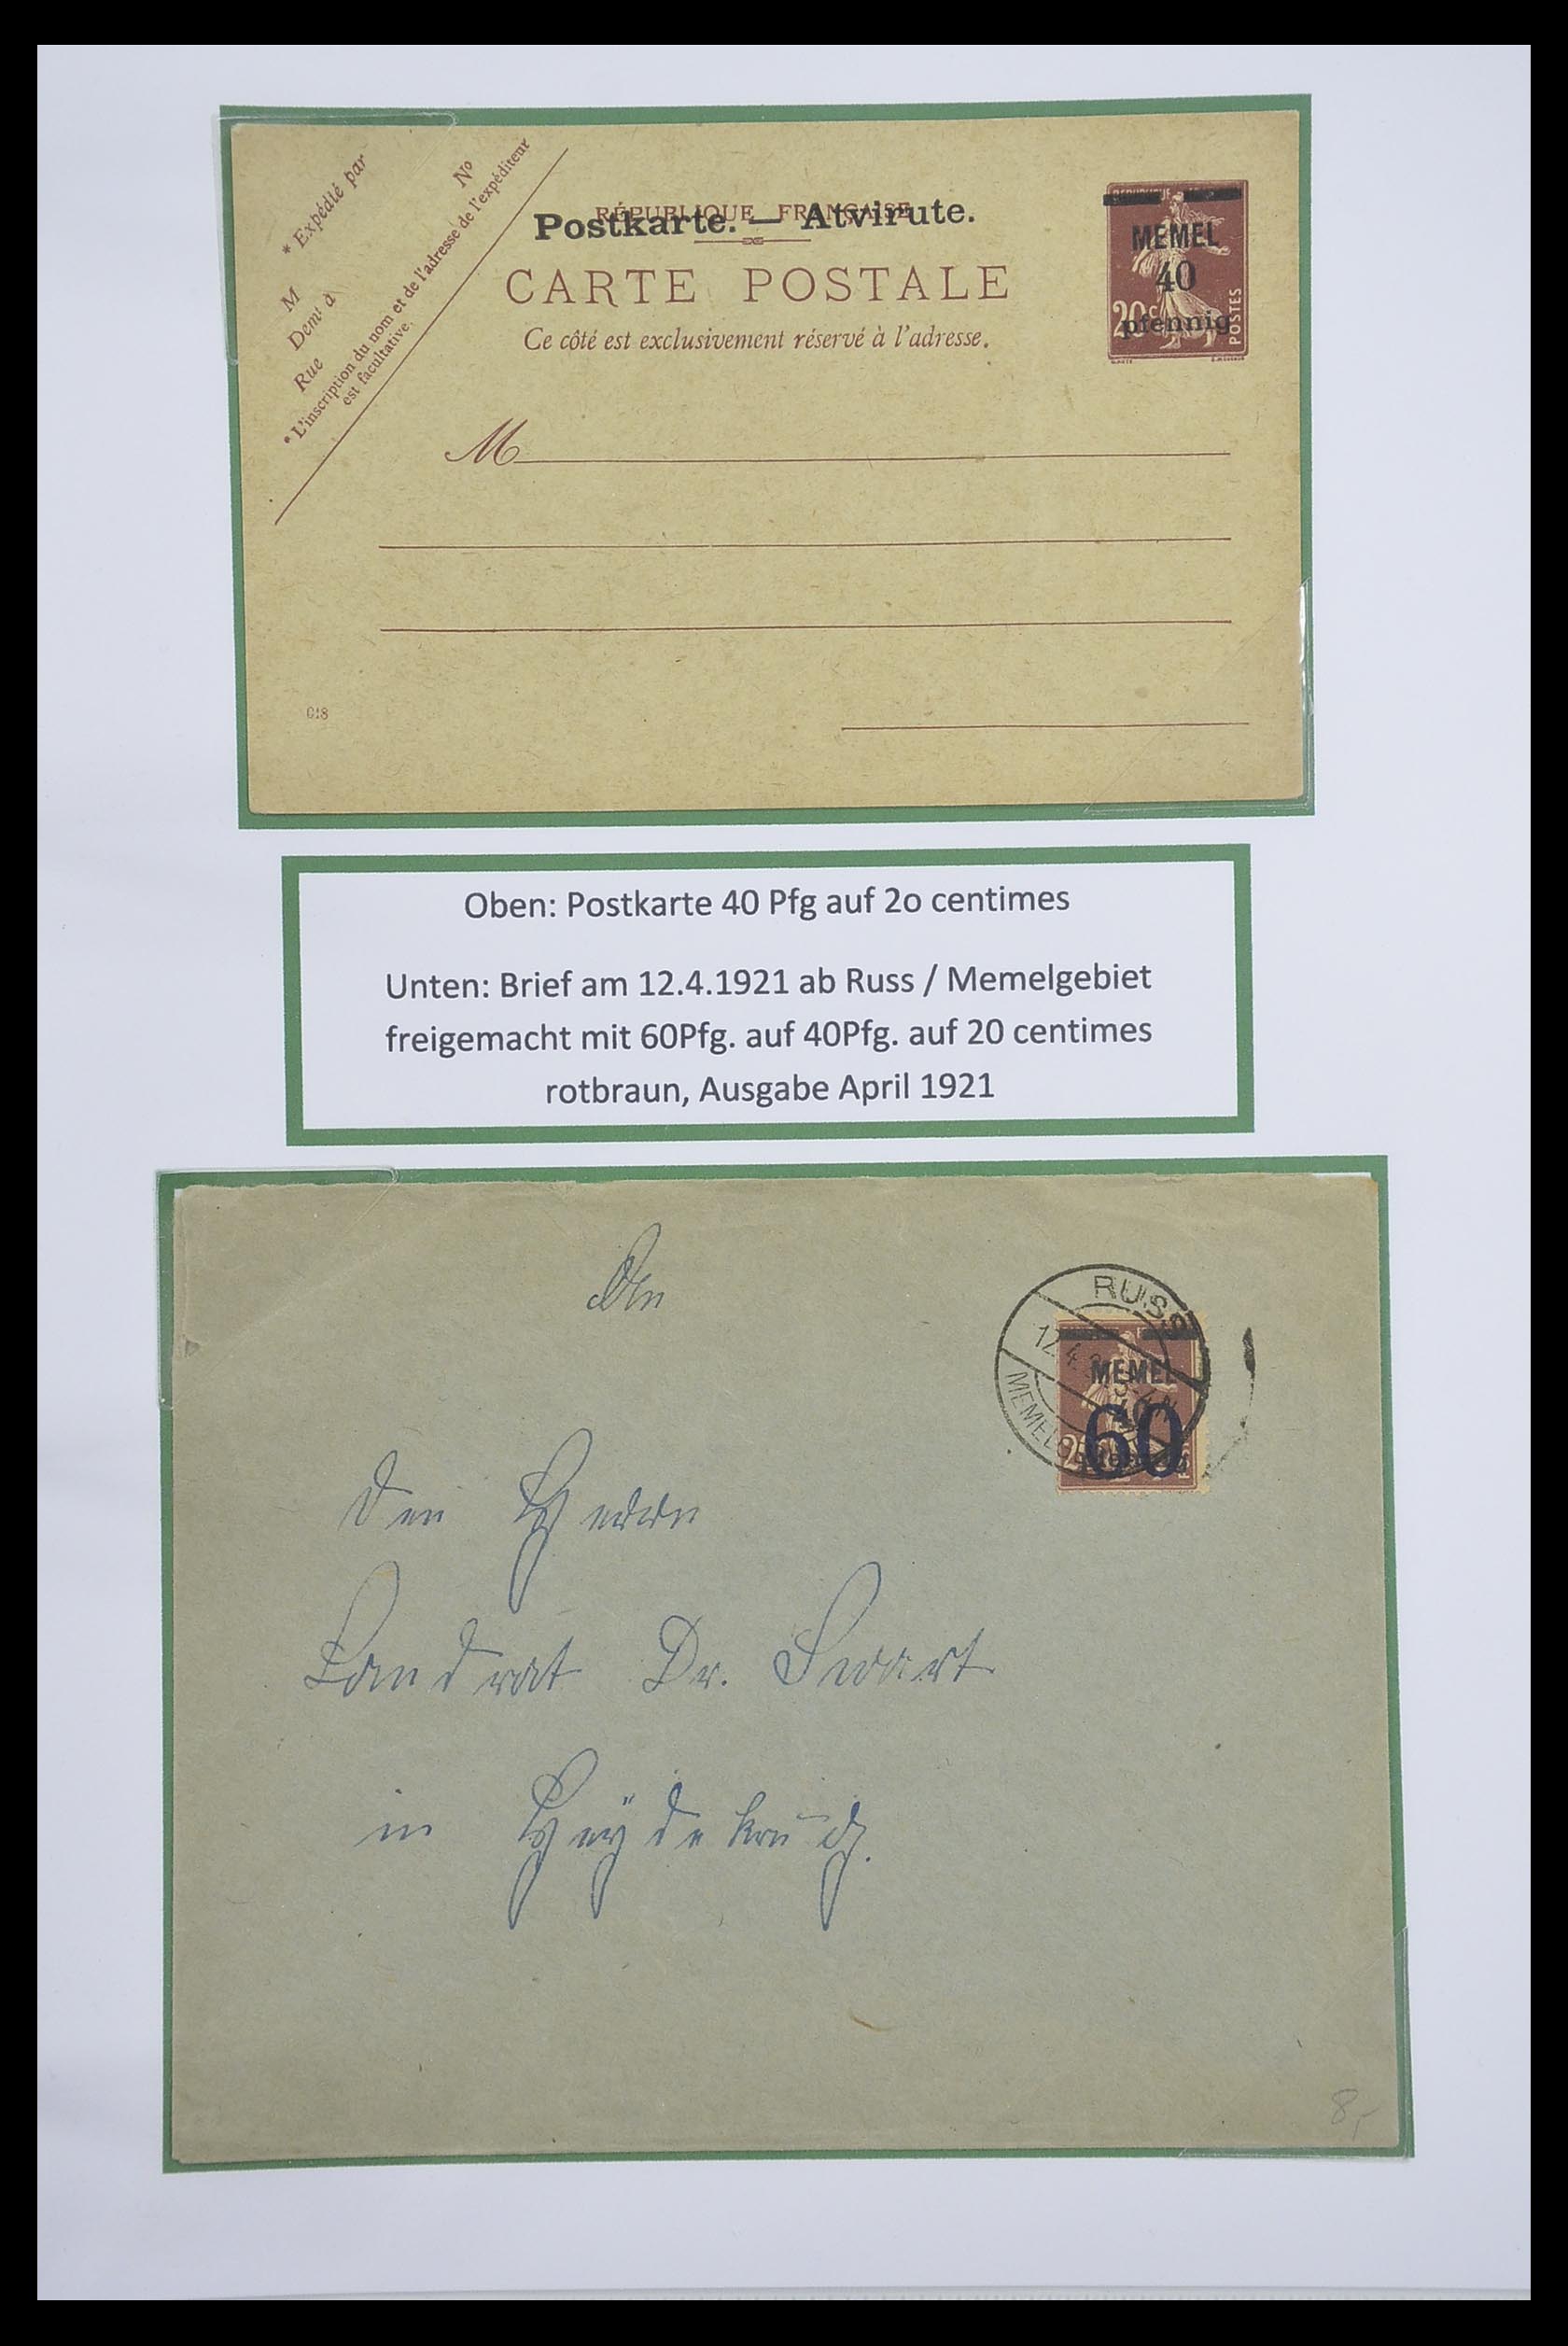 * Expédié par
M
Nº
Demᵗ à
Rue
* L'inscription du nom et de l'adresse de l'expéditeur
est facultative.
RÉPUBLIQUE FRANÇAISE
Postkarte. — Atvirute.
CARTE POSTALE
Ce côté est exclusivement réservé à l'adresse.
MEMEL
40
20c
pfennig
POSTES
M
Oben: Postkarte 40 Pfg auf 2o centimes
Unten: Brief am 12.4.1921 ab Russ / Memelgebiet
freigemacht mit 60Pfg. auf 40Pfg. auf 20 centimes
rotbraun, Ausgabe April 1921
An
RUSS
12.4.
MEMEL
60
den Herrn
Landrat Dr. Swart
in Heydekrug.
8,-